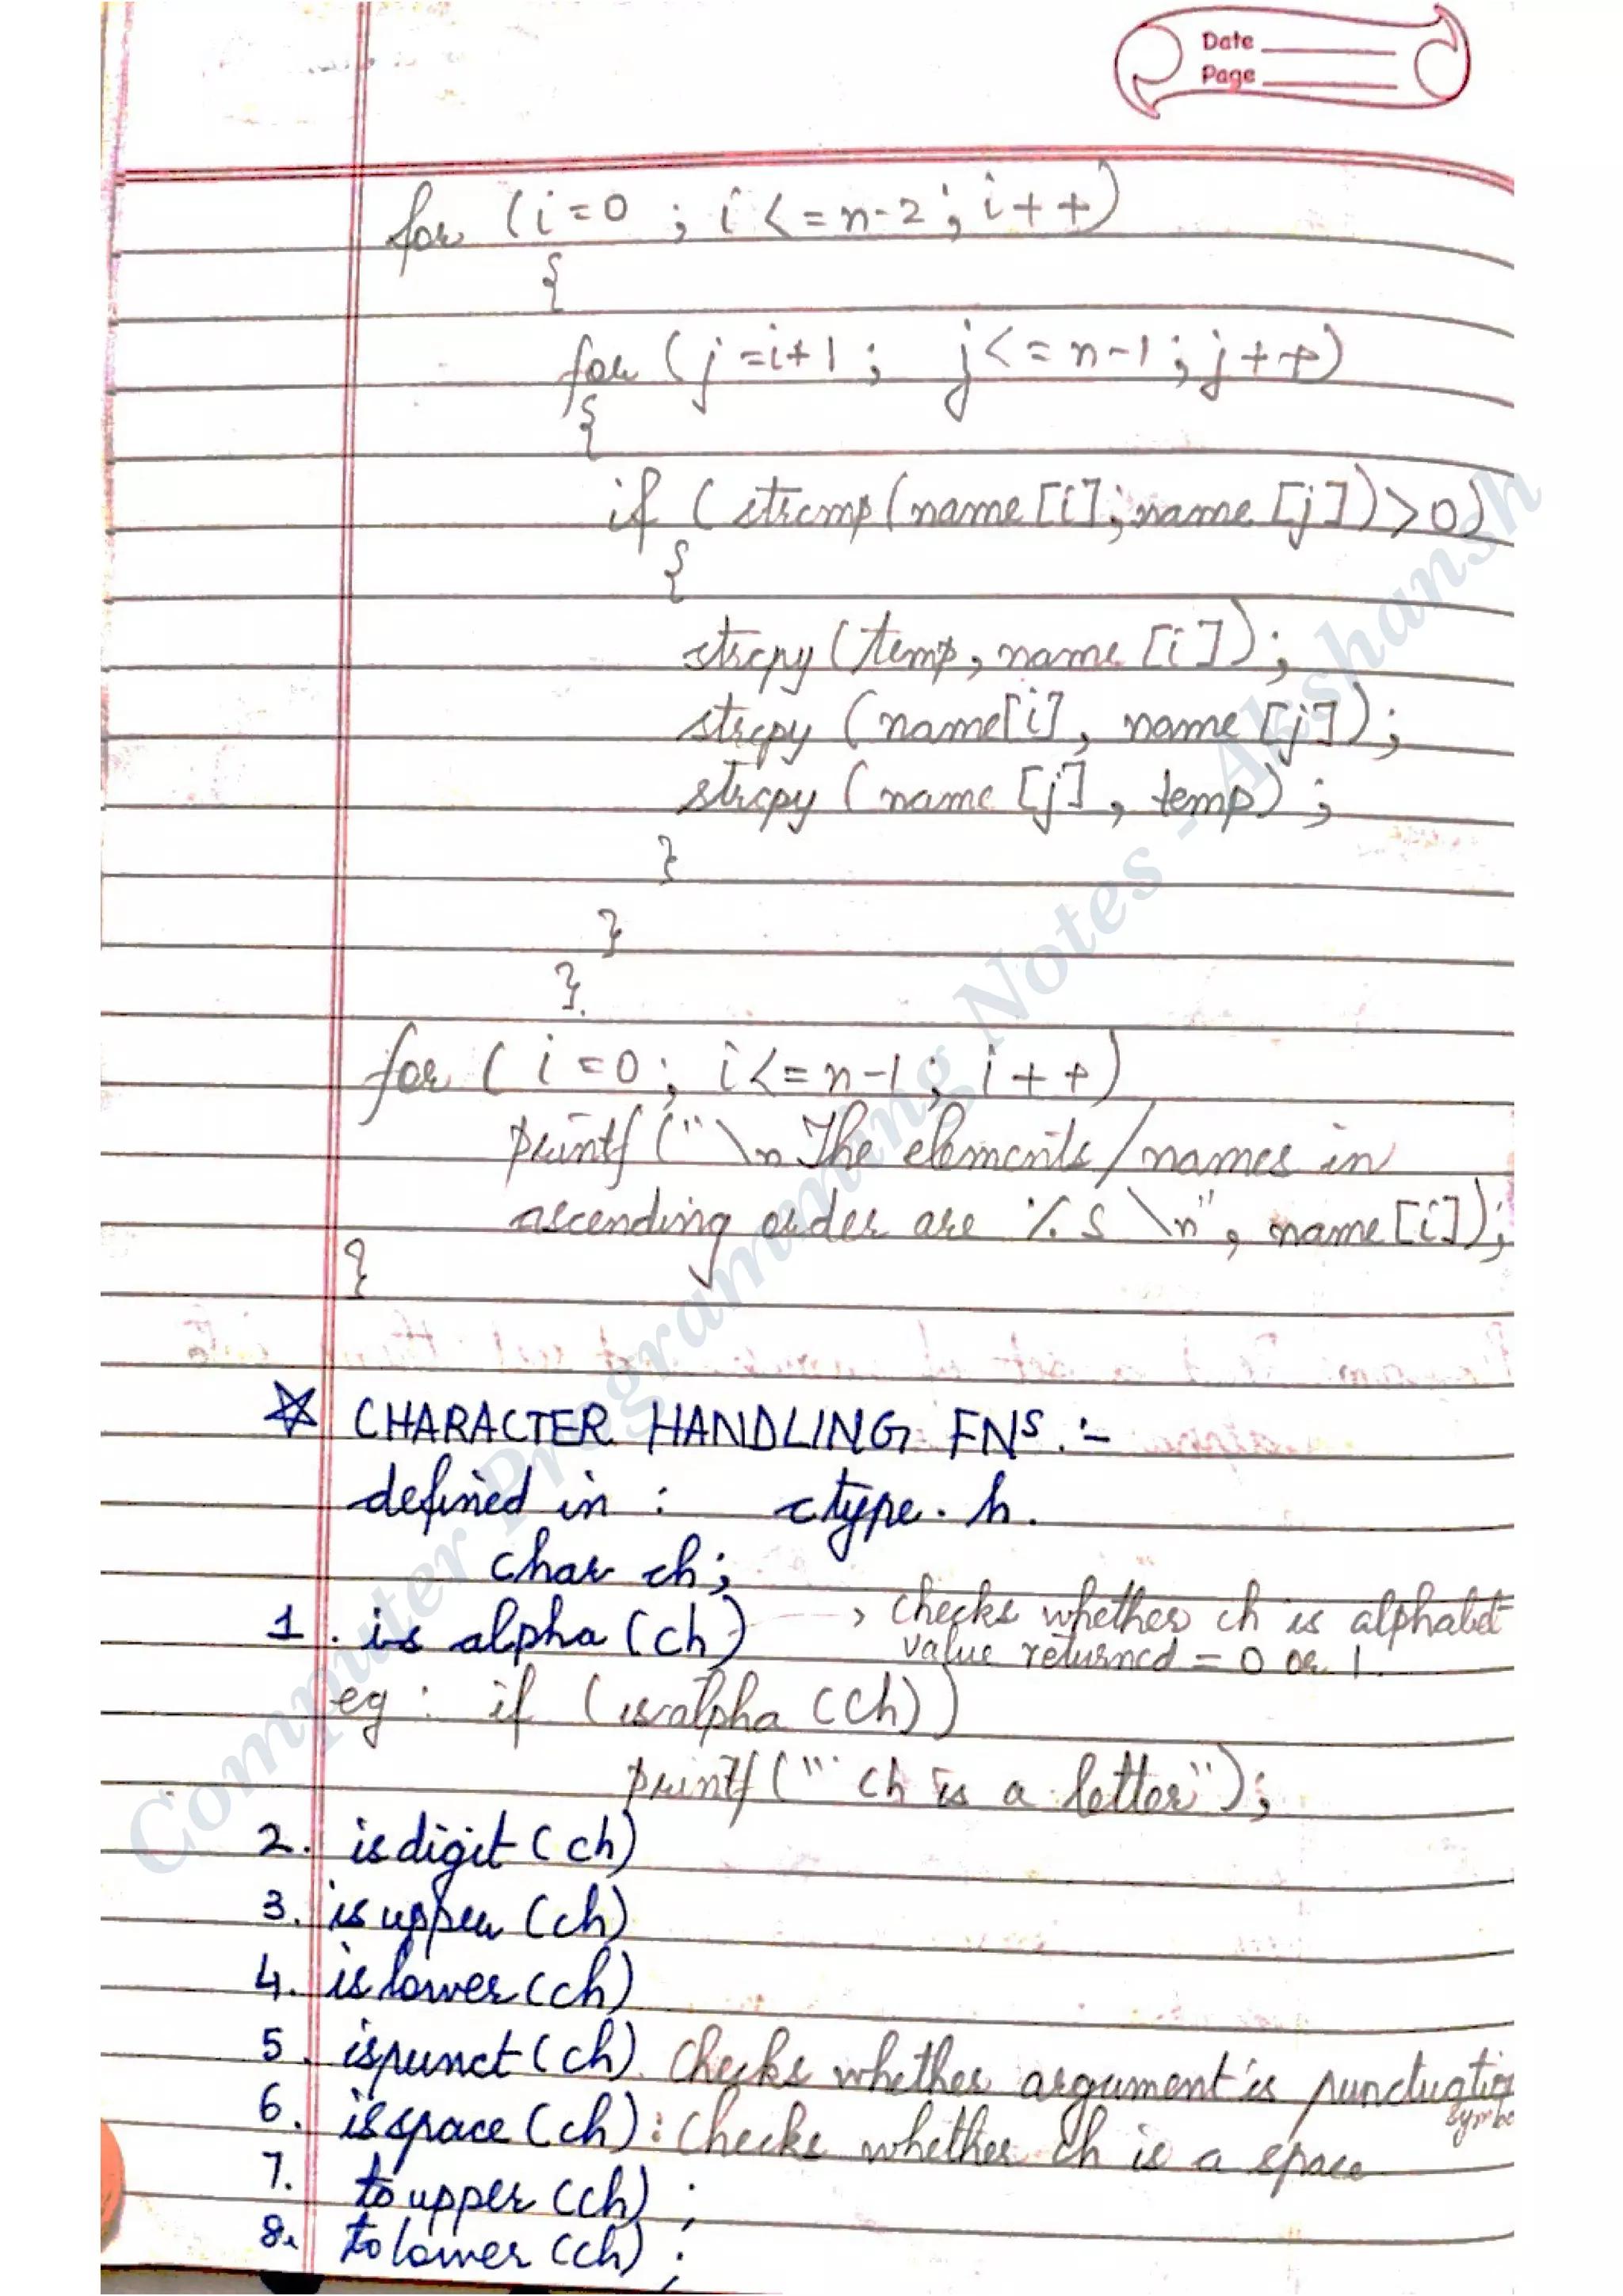 Date
Page
for (i=0 ; i<=n-2 ; i++)
{
for (j=i+1 ; j<=n-1 ; j++)
{
if (strcmp(name[i];name[j])>0)
{
strcpy(temp, name[i]);
strcpy (name[i], name[j]);
strcpy (name[j], temp);
}
}
}
for (i=0 ; i<=n-1 ; i++)
printf("\n The elements/names in
ascending order are %s \n", name[i]);
}
☆ CHARACTER HANDLING FNS :-
defined in : ctype.h.
char ch;
1. is alpha (ch) → checks whether ch is alphabet
value returned = 0 or 1.
eg : if (isalpha (ch))
printf(" ch is a letter");
2. isdigit (ch)
3. isupper (ch)
4. islower (ch)
5. ispunct (ch). Checks whether argument is punctuation
symbo
6. isspace (ch) : Checks whether ch is a space
7. toupper (ch) ;
8. tolower (ch) ;
Computer Programming Notes - Akshansh